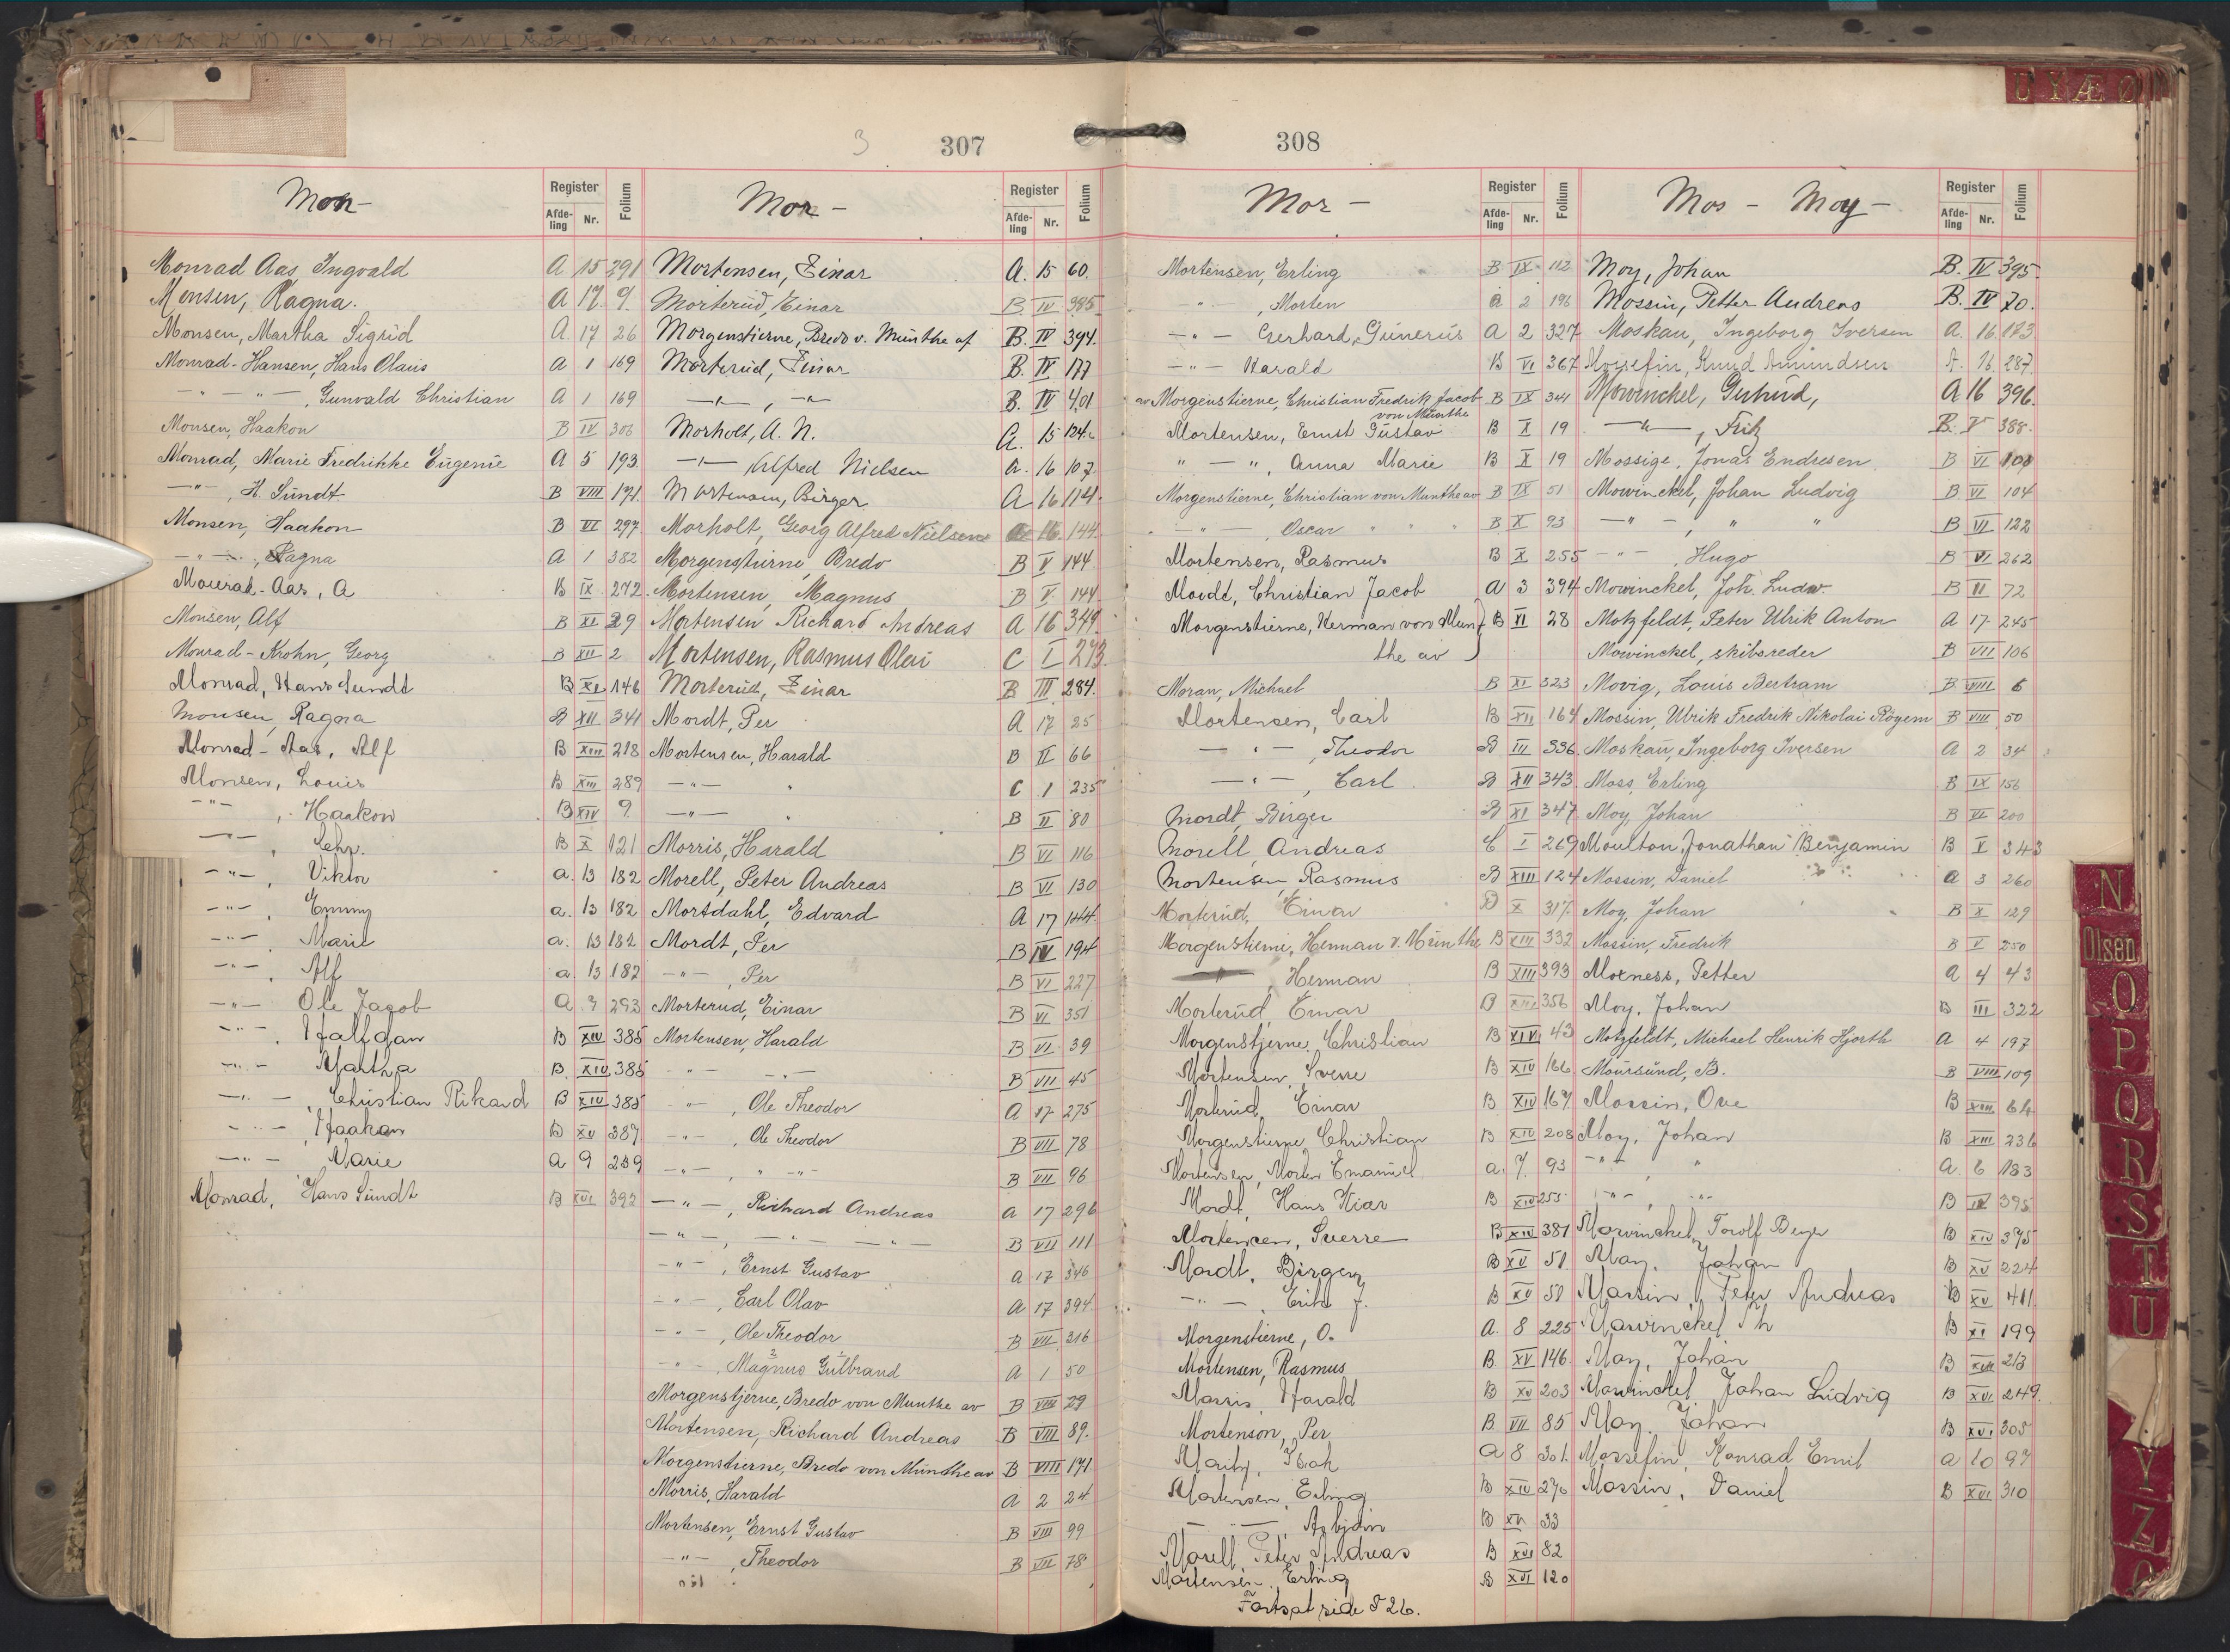 UYÆØ
3 307
Mon- Register Afde-ling Nr. Folium
Monrad Aas Ingvald A 15 391
Monsen, Ragna. A 17 9
Monsen, Martha Sigrid A. 17 26
Monrad-Hansen, Hans Olaus A 1 169
-"- -"-, Gunvald Christian A 1 169
Monsen, Haakon B IV 306
Monrad, Marie Fredrikke Eugenie A 5 193
-"-, H. Sundt B VIII 191
Monsen, Haakon B VI 297
-"-, Ragna A 1 382
Monrad-Aas, A B IX 242
Monsen, Alf B XI 29
Monrad-Krohn, Georg B XII 2
Monrad, Hans Sundt B XI 146
Monsen, Ragna B XII 341
Monrad-Aas, Alf B XIII 218
Monsen, Louis B XIII 289
-"-, Haakon B XIV 9
-"-, Chr. B X 121
-"-, Viktor a. 13 182
-"-, Emmy a. 13 182
-"-, Marie a. 13 182
-"-, Alf a 13 182
-"- Ole Jacob a 7 293
-"-, Halfdan B XIV 385
-"- Martha B. XIV 385
-"-, Christian Rikard B XIV 385
-"-, Haakon B XV 387
-"- Marie a 9 259
Monrad, Hans Sundt B XVI 392
Mor- Register Afde-ling Nr. Folium
Mortensen, Einar A. 15 60.
Morterud, Einar B. IV 385
Morgenstierne, Bredo v. Munthe af B. IV 394.
Morterud, Einar B. IV 177
-"-, -"- B. IV 401
Morholt, A. N. A. 15 124.
-"- Alfred Nielsen a. 16 107
Mortensen, Birger A 16 114.
Morholt, Georg Alfred Nielsen 16. 144.
Morgenstierne, Bredo B V 144
Mortensen, Magnus B V. 144
Mortensen Richard Andreas A 16 349.
Mortensen, Rasmus Olai C I 273.
Morterud, Einar B III 284.
Mordt, Per A 17 25
Mortensen, Harald B II 66
-"- " C 1 235
-"- " B II 80
Morris, Harald B VI 116
Morell, Peter Andreas B VI 130
Morsdahl, Edvard A 17 144.
Mordt, Per B IV 194
-"-, Per B VI 227
Morterud, Einar B VI 351
Mortensen, Harald B VI 39
-"- -"- B VII 45
-"-, Ole Theodor A 17 275
-"-, Ole Theodor B VII 78
-"-, " -"- B VII 96
-"-, Richard Andreas A 17 296
-"-, -"- -"- B VII 111
-"-, Ernst Gustav A 17 346
-"-, Carl Olav A 17 394
-"-, Ole Theodor B VII 316
-"- Magnus Gulbrand A 1 50
Morgenstjerne, Bredo von Munthe av B VIII 29
Mortensen, Richard Andreas B VIII 89.
Morgenstierne, Bredo von Munthe av B VIII 171
Morris, Harald A 2 24
Mortensen, Ernst Gustav B VIII 99
-"-, Theodor B VII 78
308
Mor- Register Afde-ling Nr. Folium
Mortensen, Erling B IX 112
-"-, Morten a 2 196
-"- Gerhard, Gunerus A 2 327
-"- Harald B VI 367
av Morgenstierne, Christian Fredrik Jacob von Munthe B IX 341
Mortensen, Ernst Gustav B X 19
" - ", Anna Marie B X 19
Morgenstierne, Christian von Munthe av B IX 51
-"- Oscar " " " B X 93
Mortensen, Rasmus B X 255
Mordt, Christian Jacob a 3 394
Morgenstierne, Herman von Mun the av B XI 28
Moran, Michael B XI 323
Mortensen, Carl B XII 164
-"-, Theodor B III 336
-"-, Carl B XII 343
Mordt, Birger B XI 347
Morell, Andreas C I 269
Mortensen Rasmus B XIII 124
Morterud, Einar B X 317
Morgenstierne, Herman v. Munthe B XIII 332
-"-, Herman B XIII 393
Morterud, Einar B XIII 356
Morgenstjerne, Christian B XIV 43
Mortensen, Sverre B XIV 166
Morterud, Einar B. XIV 167
Morgenstierne, Christian B XIV 208
Mortensen, Morten Emanuel a. 7. 93
Mordt, Hans Kiar B XIV 255
Mortensen, Sverre B XIV 381
Mordt, Birger B XV 51
-"-, Erith J. B XV 51
Morgenstierne, O. A. 8 225
Mortensen, Rasmus B. XV 146.
Morris, Harald B XV 203
Mortenson, Per B. VII 85
Moritz, Isak a 8 301.
Mortensen, Erling B XIV 276
-"-, Asbjørn B XVI 33
Morell, Peter Andreas B XVI 82
Mortensen, Erling B XVI 120
Fortsat side 526.
Mos - Moy- Register Afde-ling Nr. Folium
Moy, Johan B. IV 395
Mossin, Petter Andreas B. IV 70.
Moskau, Ingeborg Iversen A. 16. 183
Mossefin, Knud Amundsen A. 16. 287
Mowinckel, Guthrid, A 16 396.
-"-, Fritz B. V 388.
Mossige, Jonas Endresen B VI 101
Mowinckel, Johan Ludvig B VI 104
-"-, " " B VI 122
-"-, Hugo B VI 262
Mowinckel, Joh. Ludw. B VI 72
Motzfeldt, Peter Ulrik Anton A 17 245
Mowinckel, skibsreder B VII 106
Movig, Louis Bertram B VIII 6
Mossin, Ulrik Fredrik Nikolai Rögem B VIII 50
Moskau, Ingeborg Iversen A 2 34
Moss, Erling B IX 156
Moy, Johan B VI 200
Moulton, Jonathan Benjamin B X 343
Mossin, Daniel a 3 260
Moy, Johan B X 129
Mossin, Fredrik B V 250
Moxness, Petter a 4 43
Moy, Johan B III 322
Motzfeldt, Michael Henrik Hjorth A 4 197
Moursund, B. B VIII 109
Mossin, Ove B XIII 64
Moy, Johan B XIII 236
-"- " a. 6 183
-"-, -"- B IX 395
Mowinckel, Torolf Beyer B XIV 375
Moy, Johan B XV 224
Mossin, Peter Andreas B XV 411.
Mowinckel Th B XI 199
Moy, Johan B XIII 213
Mowinckel, Johan Ludvig B XVI 249.
Moy, Johan B XVI 305
Mossefin, Konrad Emil a 10 97
Mossin, Daniel B XVI 310
N
Olsen
O
P
Q
R
S
T
U
Y
Z